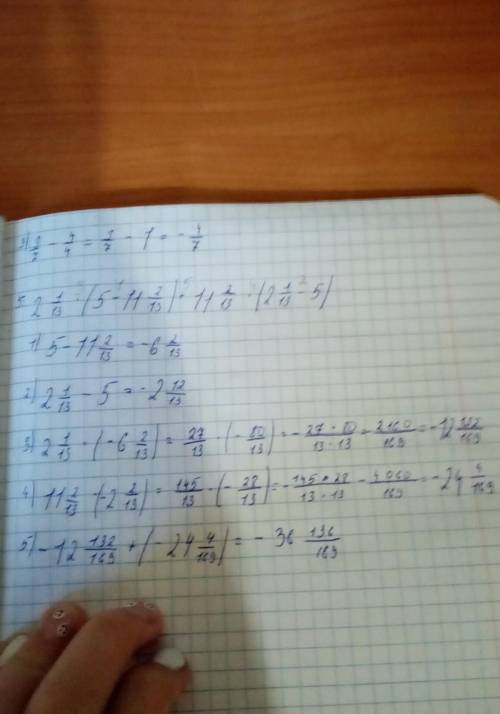 3) 3/7 - 4/4 = 3/7 - 1 = - 4/7
5. 2 1/13 · (5 - 11 2/13) + 11 2/13 · (2 1/13 - 5)
1) 5 - 11 2/13 = - 6 2/13
2) 2 1/13 - 5 = - 2 12/13
3) 2 1/13 · (- 6 2/13) = 27/13 · (- 80/13) = - 27 · 80/13 · 13 = 2160/169 = - 12 132/169
4) 11 2/13 · (- 2 2/13) = 145/13 · (- 28/13) = - 145 · 28/13 · 13 - 4060/169 = - 24 4/169
5) - 12 132/169 + (- 24 4/169) = - 36 136/169